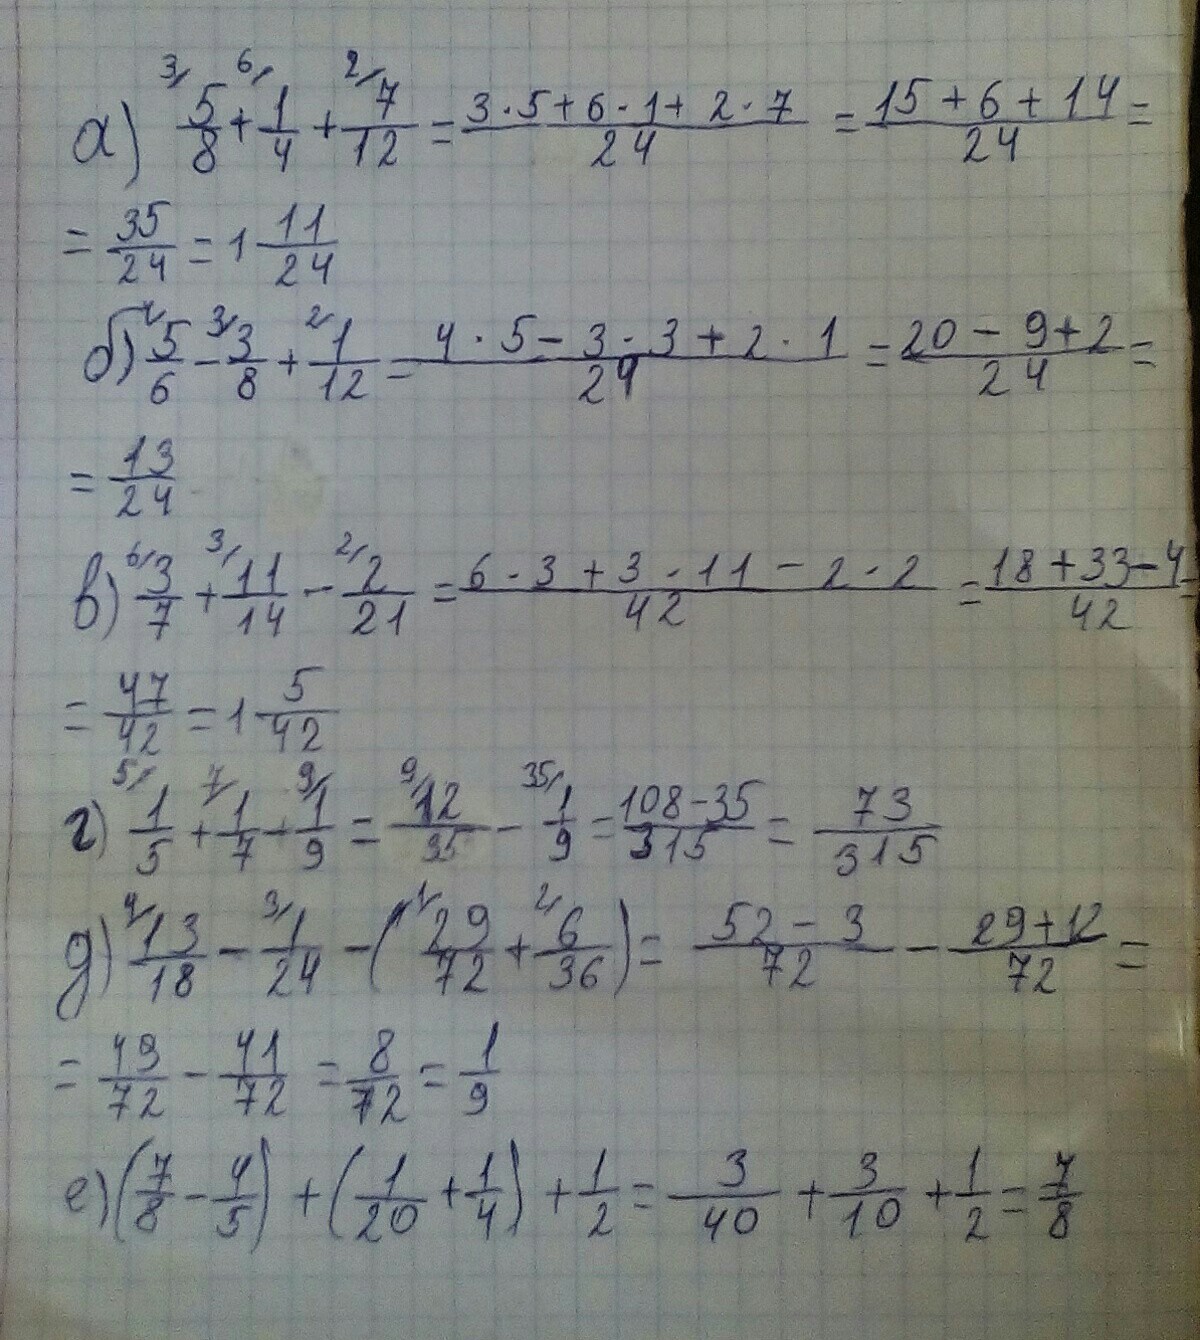 а) 3/ 5/8 + 6/ 1/4 + 2/ 7/12 = (3·5+6·1+2·7)/24 = (15+6+14)/24 =
= 35/24 = 1 11/24
б) 4/ 5/6 - 3/ 3/8 + 2/ 1/12 = (4·5-3·3+2·1)/24 = (20-9+2)/24 =
= 13/24
в) 6/ 3/7 + 3/ 11/14 - 2/ 2/21 = (6·3+3·11-2·2)/42 = (18+33-4)/42 =
= 47/42 = 1 5/42
г) 5/ 1/5 + 7/ 1/7 - 9/ 1/9 = 9/ 12/35 - 35/ 1/9 = (108-35)/315 = 73/315
д) 4/ 13/18 - 3/ 1/24 - (1/ 29/72 + 2/ 6/36) = (52-3)/72 - (29+12)/72 =
= 49/72 - 41/72 = 8/72 = 1/9
е) (7/8 - 4/5) + (1/20 + 1/4) + 1/2 = 3/40 + 3/10 + 1/2 = 7/8